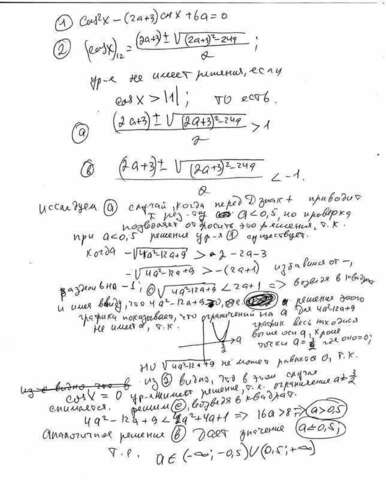 ① cos²x − (2a+3)cosx + 6a = 0
② (cosx)₁₂ = (2a+3) ± √(2a+3)² − 24a / 2 ;
ур-е не имеет решения, если
cosx > |1| ; то есть.
ⓐ (2a+3) ± √(2a+3)² − 24a / 2 > 1
ⓑ (2a+3) ± √(2a+3)² − 24a / 2 < −1.
исследуем ⓐ случай, когда перед D знак + приводит
к рез-ту a < 0,5, но проверка
позволяет отбросить это решения, т.к.
при a < 0,5 решения ур-я ① существует.
Когда −√4a²−12a+9 > 2−2a−3
−√4a²−12a+9 > −(2a+1) избавимся от −,
разделив на −1, ⓒ √4a²−12a+9 < 2a+1 ⇒ возведя в квадрат
и имея ввиду, что 4a²−12a+9 решения этого
графика показывает, что ограничений на a для 4a²−12a+9
не имеет a, т.к. график весь находится
выше оси a, кроме
точки a = где оно = 0;
но √4a²−12a+9 не может равняться 0, т.к.
из ② видно, что в этом случае
cosx = 0 ур-я имеет решения, т.к. ограничение a ≠ 3/2
снимается. решим ⓒ, возведя в квадрат.
4a² − 12a + 9 < 4a² + 4a + 1 ⇒ 16a > 8 ⇒ a > 0,5
Аналогичное решение ⓑ дает значение a < 0,5;
т.е. a ∈ (−∞; −0,5) ∪ (0,5; +∞)